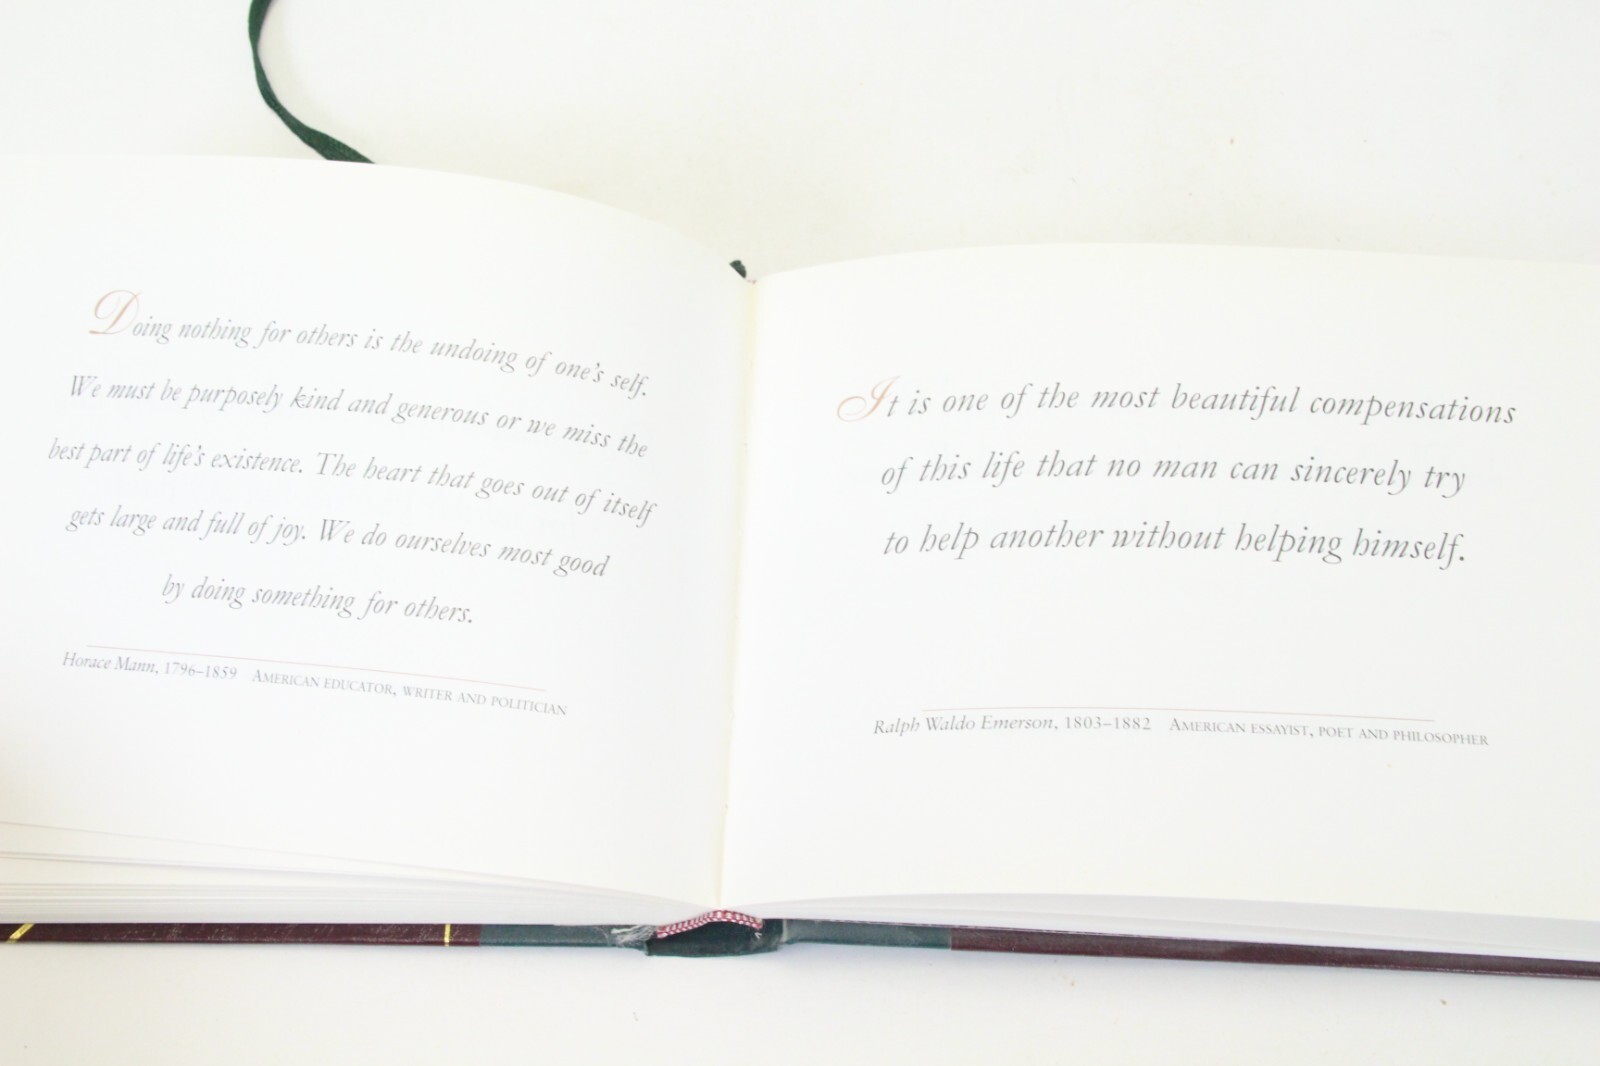 Doing nothing for others is the undoing of one's self.
We must be purposely kind and generous or we miss the
best part of life's existence. The heart that goes out of itself
gets large and full of joy. We do ourselves most good
by doing something for others.
Horace Mann, 1796–1859 AMERICAN EDUCATOR, WRITER AND POLITICIAN
It is one of the most beautiful compensations
of this life that no man can sincerely try
to help another without helping himself.
Ralph Waldo Emerson, 1803–1882 AMERICAN ESSAYIST, POET AND PHILOSOPHER